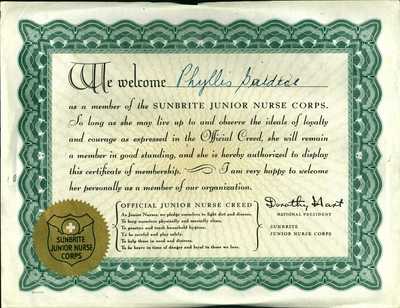 We welcome Phyllis
as a member of the SUNBRITE JUNIOR NURSE CORPS.
So long as she may live up to and observe the ideals of loyalty
and courage as expressed in the Official Creed, she will remain
a member in good standing, and she is hereby authorized to display
this certificate of membership. I am very happy to welcome
her personally as a member of our organization.
OFFICIAL JUNIOR NURSE CREED
As Junior Nurses, we pledge ourselves to fight dirt and disease,
To keep ourselves physically and mentally clean,
To practice and teach household hygiene.
To be careful and play safely.
To help those in need and distress.
To be brave in time of danger and loyal to those we love.
Dorothy Hart
NATIONAL PRESIDENT
SUNBRITE
JUNIOR NURSE CORPS
SUNBRITE
JUNIOR NURSE
CORPS